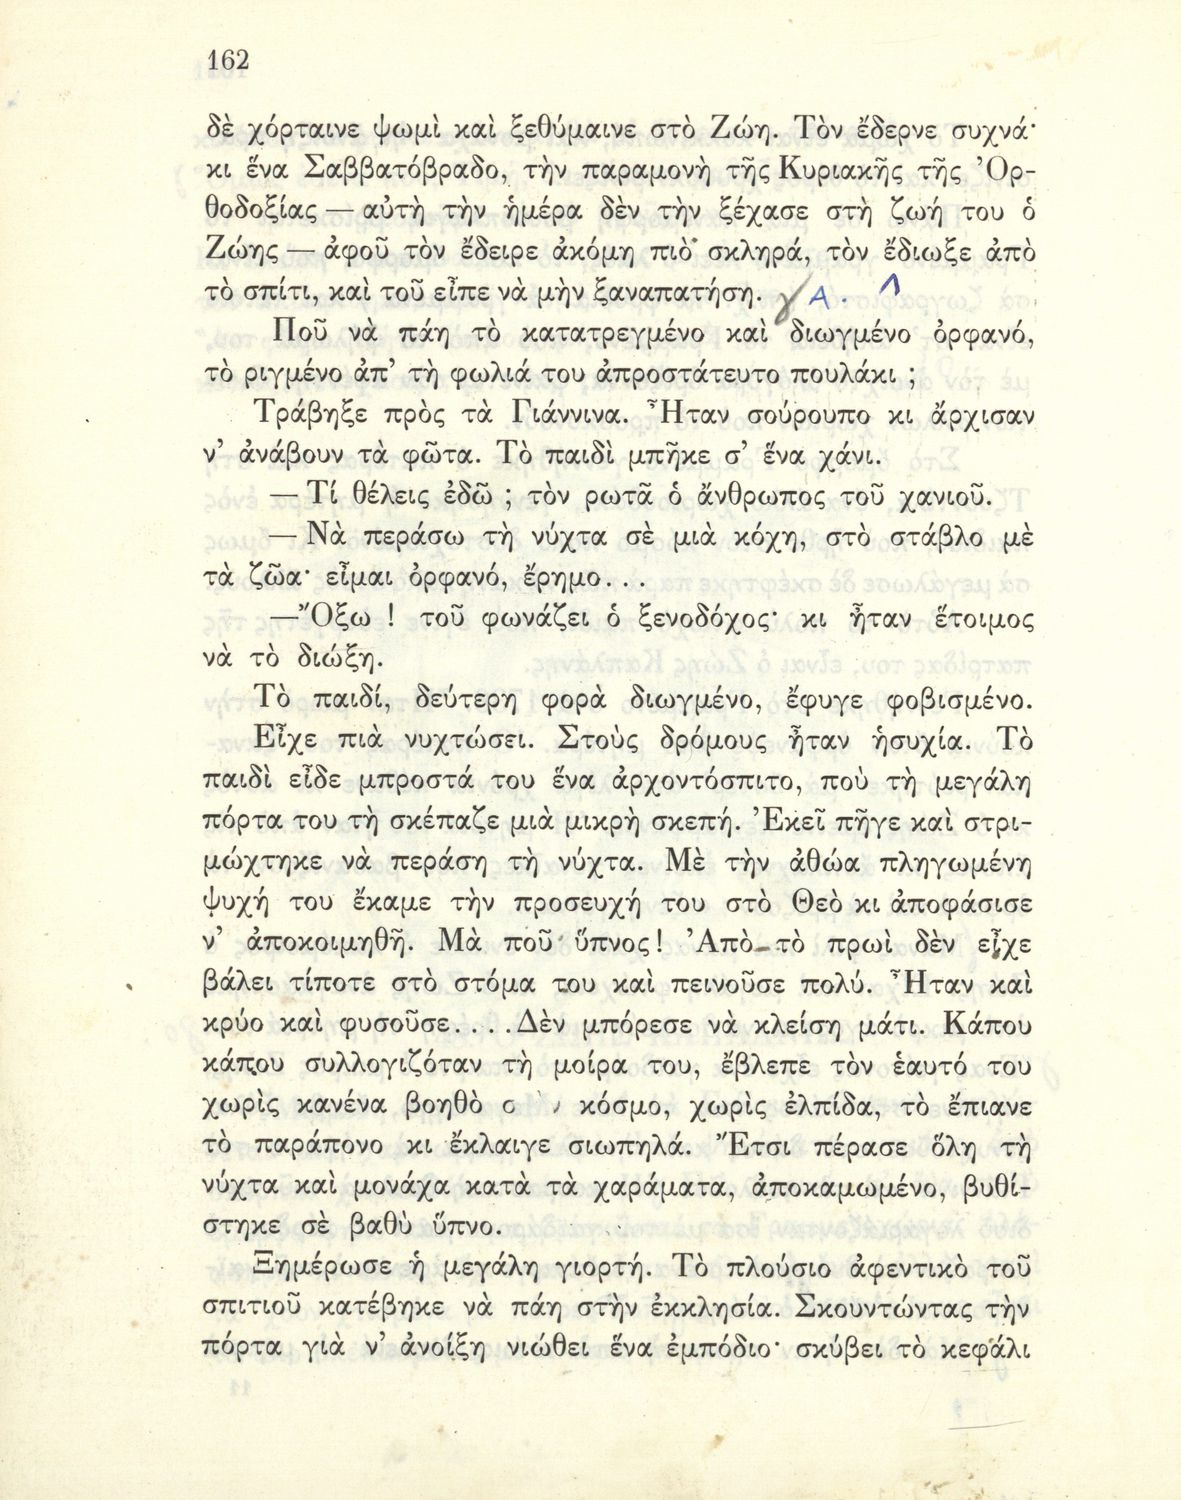 162
δὲ χόρταινε ψωμὶ καὶ ξεθύμαινε στὸ Ζώη. Τὸν ἔδερνε συχνά·
κι ἕνα Σαββατόβραδο, τὴν παραμονὴ τῆς Κυριακῆς τῆς Ὀρ-
θοδοξίας — αὐτὴ τὴν ἡμέρα δὲν τὴν ξέχασε στὴ ζωή του ὁ
Ζώης — ἀφοῦ τὸν ἔδειρε ἀκόμη πιὸ σκληρά, τὸν ἔδιωξε ἀπὸ
τὸ σπίτι, καὶ τοῦ εἶπε νὰ μὴν ξαναπατήση. Α. Λ
Ποῦ νὰ πάη τὸ κατατρεγμένο καὶ διωγμένο ὀρφανό,
τὸ ριγμένο ἀπ’ τὴ φωλιά του ἀπροστάτευτο πουλάκι ;
Τράβηξε πρὸς τὰ Γιάννινα. Ἦταν σούρουπο κι ἄρχισαν
ν’ ἀνάβουν τὰ φῶτα. Τὸ παιδὶ μπῆκε σ’ ἕνα χάνι.
— Τί θέλεις ἐδῶ ; τὸν ρωτᾶ ὁ ἄνθρωπος τοῦ χανιοῦ.
— Νὰ περάσω τὴ νύχτα σὲ μιὰ κόχη, στὸ στάβλο μὲ
τὰ ζῶα· εἶμαι ὀρφανό, ἔρημο...
— Ὄξω ! τοῦ φωνάζει ὁ ξενοδόχος· κι ἦταν ἕτοιμος
νὰ τὸ διώξη.
Τὸ παιδί, δεύτερη φορὰ διωγμένο, ἔφυγε φοβισμένο.
Εἶχε πιὰ νυχτώσει. Στοὺς δρόμους ἦταν ἡσυχία. Τὸ
παιδὶ εἶδε μπροστά του ἕνα ἀρχοντόσπιτο, ποὺ τὴ μεγάλη
πόρτα του τὴ σκέπαζε μιὰ μικρὴ σκεπή. Ἐκεῖ πῆγε καὶ στρι-
μώχτηκε νὰ περάση τὴ νύχτα. Μὲ τὴν ἀθώα πληγωμένη
ψυχή του ἔκαμε τὴν προσευχή του στὸ Θεὸ κι ἀποφάσισε
ν’ ἀποκοιμηθῆ. Μὰ ποῦ ὕπνος! Ἀπὸ τὸ πρωὶ δὲν εἶχε
βάλει τίποτε στὸ στόμα του καὶ πεινοῦσε πολύ. Ἦταν καὶ
κρύο καὶ φυσοῦσε.... Δὲν μπόρεσε νὰ κλείση μάτι. Κάπου
κάπου συλλογιζόταν τὴ μοίρα του, ἔβλεπε τὸν ἑαυτό του
χωρὶς κανένα βοηθὸ κόσμο, χωρὶς ἐλπίδα, τὸ ἔπιανε
τὸ παράπονο κι ἔκλαιγε σιωπηλά. Ἔτσι πέρασε ὅλη τὴ
νύχτα καὶ μονάχα κατὰ τὰ χαράματα, ἀποκαμωμένο, βυθί-
στηκε σὲ βαθὺ ὕπνο.
Ξημέρωσε ἡ μεγάλη γιορτή. Τὸ πλούσιο ἀφεντικὸ τοῦ
σπιτιοῦ κατέβηκε νὰ πάη στὴν ἐκκλησία. Σκουντώντας τὴν
πόρτα γιὰ ν’ ἀνοίξη νιώθει ἕνα ἐμπόδιο· σκύβει τὸ κεφάλι